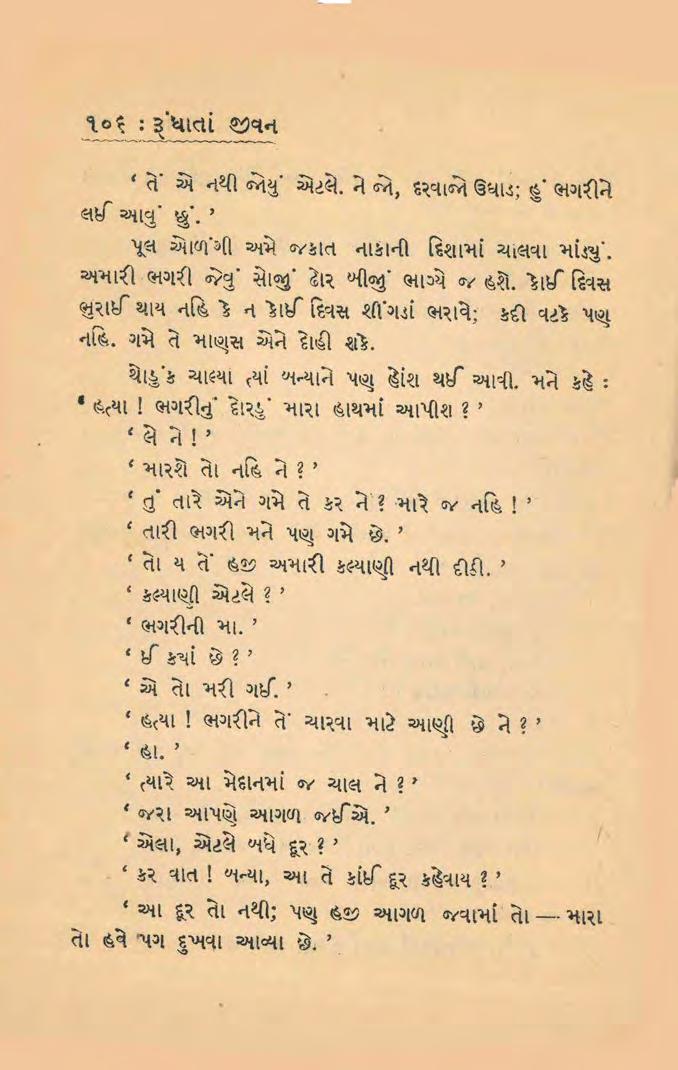 ૧૦૬ : રૂંધાતાં જીવન
‘ તેં એ નથી જોયું એટલે. ને જો, દરવાજો ઉઘાડ; હું ભગરીને
લઈ આવું છું. ’
પૂલ ઓળંગી અમે જકાત નાકાની દિશામાં ચાલવા માંડ્યું.
અમારી ભગરી જેવું સોજું ઢોર બીજું ભાગ્યે જ હશે. કોઈ દિવસ
ભુરાઈ થાય નહિ કે ન કોઈ દિવસ શીંગડાં ભરાવે; કદી વટકે પણ
નહિ. ગમે તે માણસ એને દોહી શકે.
થોડુંક ચાલ્યા ત્યાં બન્યાને પણ હોંશ થઈ આવી. મને કહે :
‘ હત્યા ! ભગરીનું દોરડું મારા હાથમાં આપીશ ? ’
‘ લે ને ! ’
‘ મારશે તો નહિ ને ? ’
‘ તું તારે એને ગમે તે કર ને ? મારે જ નહિ ! ’
‘ તારી ભગરી મને પણ ગમે છે. ’
‘ તો ય તેં હજી અમારી કલ્યાણી નથી દીઠી. ’
‘ કલ્યાણી એટલે ? ’
‘ ભગરીની મા. ’
‘ ઈ કયાં છે ? ’
‘ એ તો મરી ગઈ. ’
‘ હત્યા ! ભગરીને તેં ચારવા માટે આણી છે ને ? ’
‘ હા. ’
‘ ત્યારે આ મેદાનમાં જ ચાલ ને ? ’
‘ જરા આપણે આગળ જઈએ. ’
‘ એલા, એટલે બધે દૂર ? ’
‘ કર વાત ! બન્યા, આ તે કાંઈ દૂર કહેવાય ? ’
‘ આ દૂર તો નથી; પણ હજી આગળ જવામાં તો — મારા
તો હવે પગ દુખવા આવ્યા છે. ’